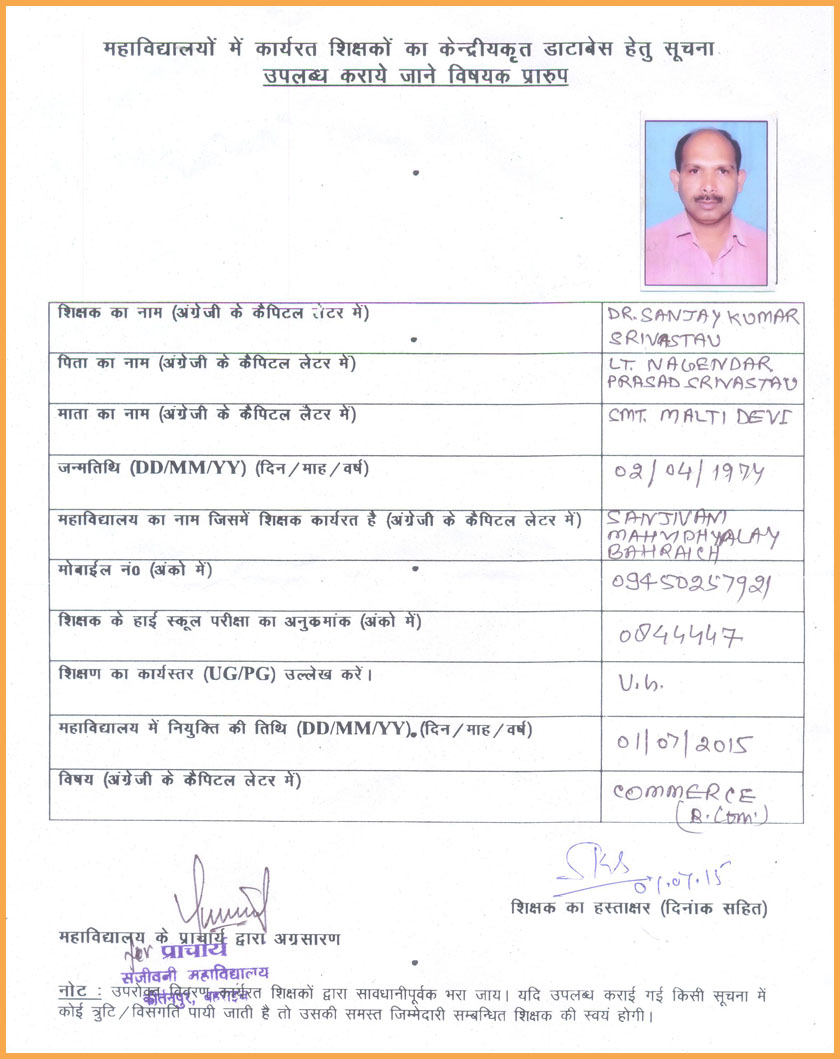 महाविद्यालयों में कार्यरत शिक्षकों का केन्द्रीयकृत डाटाबेस हेतु सूचना
उपलब्ध कराये जाने विषयक प्रारुप
शिक्षक का नाम (अंग्रेजी के कैपिटल लेटर में)
DR. SANJAY KUMAR
SRIVASTAV
पिता का नाम (अंग्रेजी के कैपिटल लेटर में)
LT. NAGENDAR
PRASAD SRIVASTAV
माता का नाम (अंग्रेजी के कैपिटल लेटर में)
SMT. MALTI DEVI
जन्मतिथि (DD/MM/YY) (दिन/माह/वर्ष)
02/04/1974
महाविद्यालय का नाम जिसमें शिक्षक कार्यरत है (अंग्रेजी के कैपिटल लेटर में)
SANJIVANI
MAHVIDHYALAY
BAHRAICH
मोबाईल नं0 (अंको में)
09450257921
शिक्षक के हाई स्कूल परीक्षा का अनुकमांक (अंको में)
0844447
शिक्षण का कार्यस्तर (UG/PG) उल्लेख करें।
U.G.
महाविद्यालय में नियुक्ति की तिथि (DD/MM/YY). (दिन/माह/वर्ष)
01/07/2015
विषय (अंग्रेजी के कैपिटल लेटर में)
COMMERCE
(B.Com.)
SKS
07.07.15
शिक्षक का हस्ताक्षर (दिनांक सहित)
महाविद्यालय के प्राचार्य द्वारा अग्रसारण
for प्राचार्य
संजीवनी महाविद्यालय
नोट : उपरोक्त विवरण कार्यरत शिक्षकों द्वारा सावधानीपूर्वक भरा जाय। यदि उपलब्ध कराई गई किसी सूचना में
कोई त्रुटि/विसंगति पायी जाती है तो उसकी समस्त जिम्मेदारी सम्बन्धित शिक्षक की स्वयं होगी।